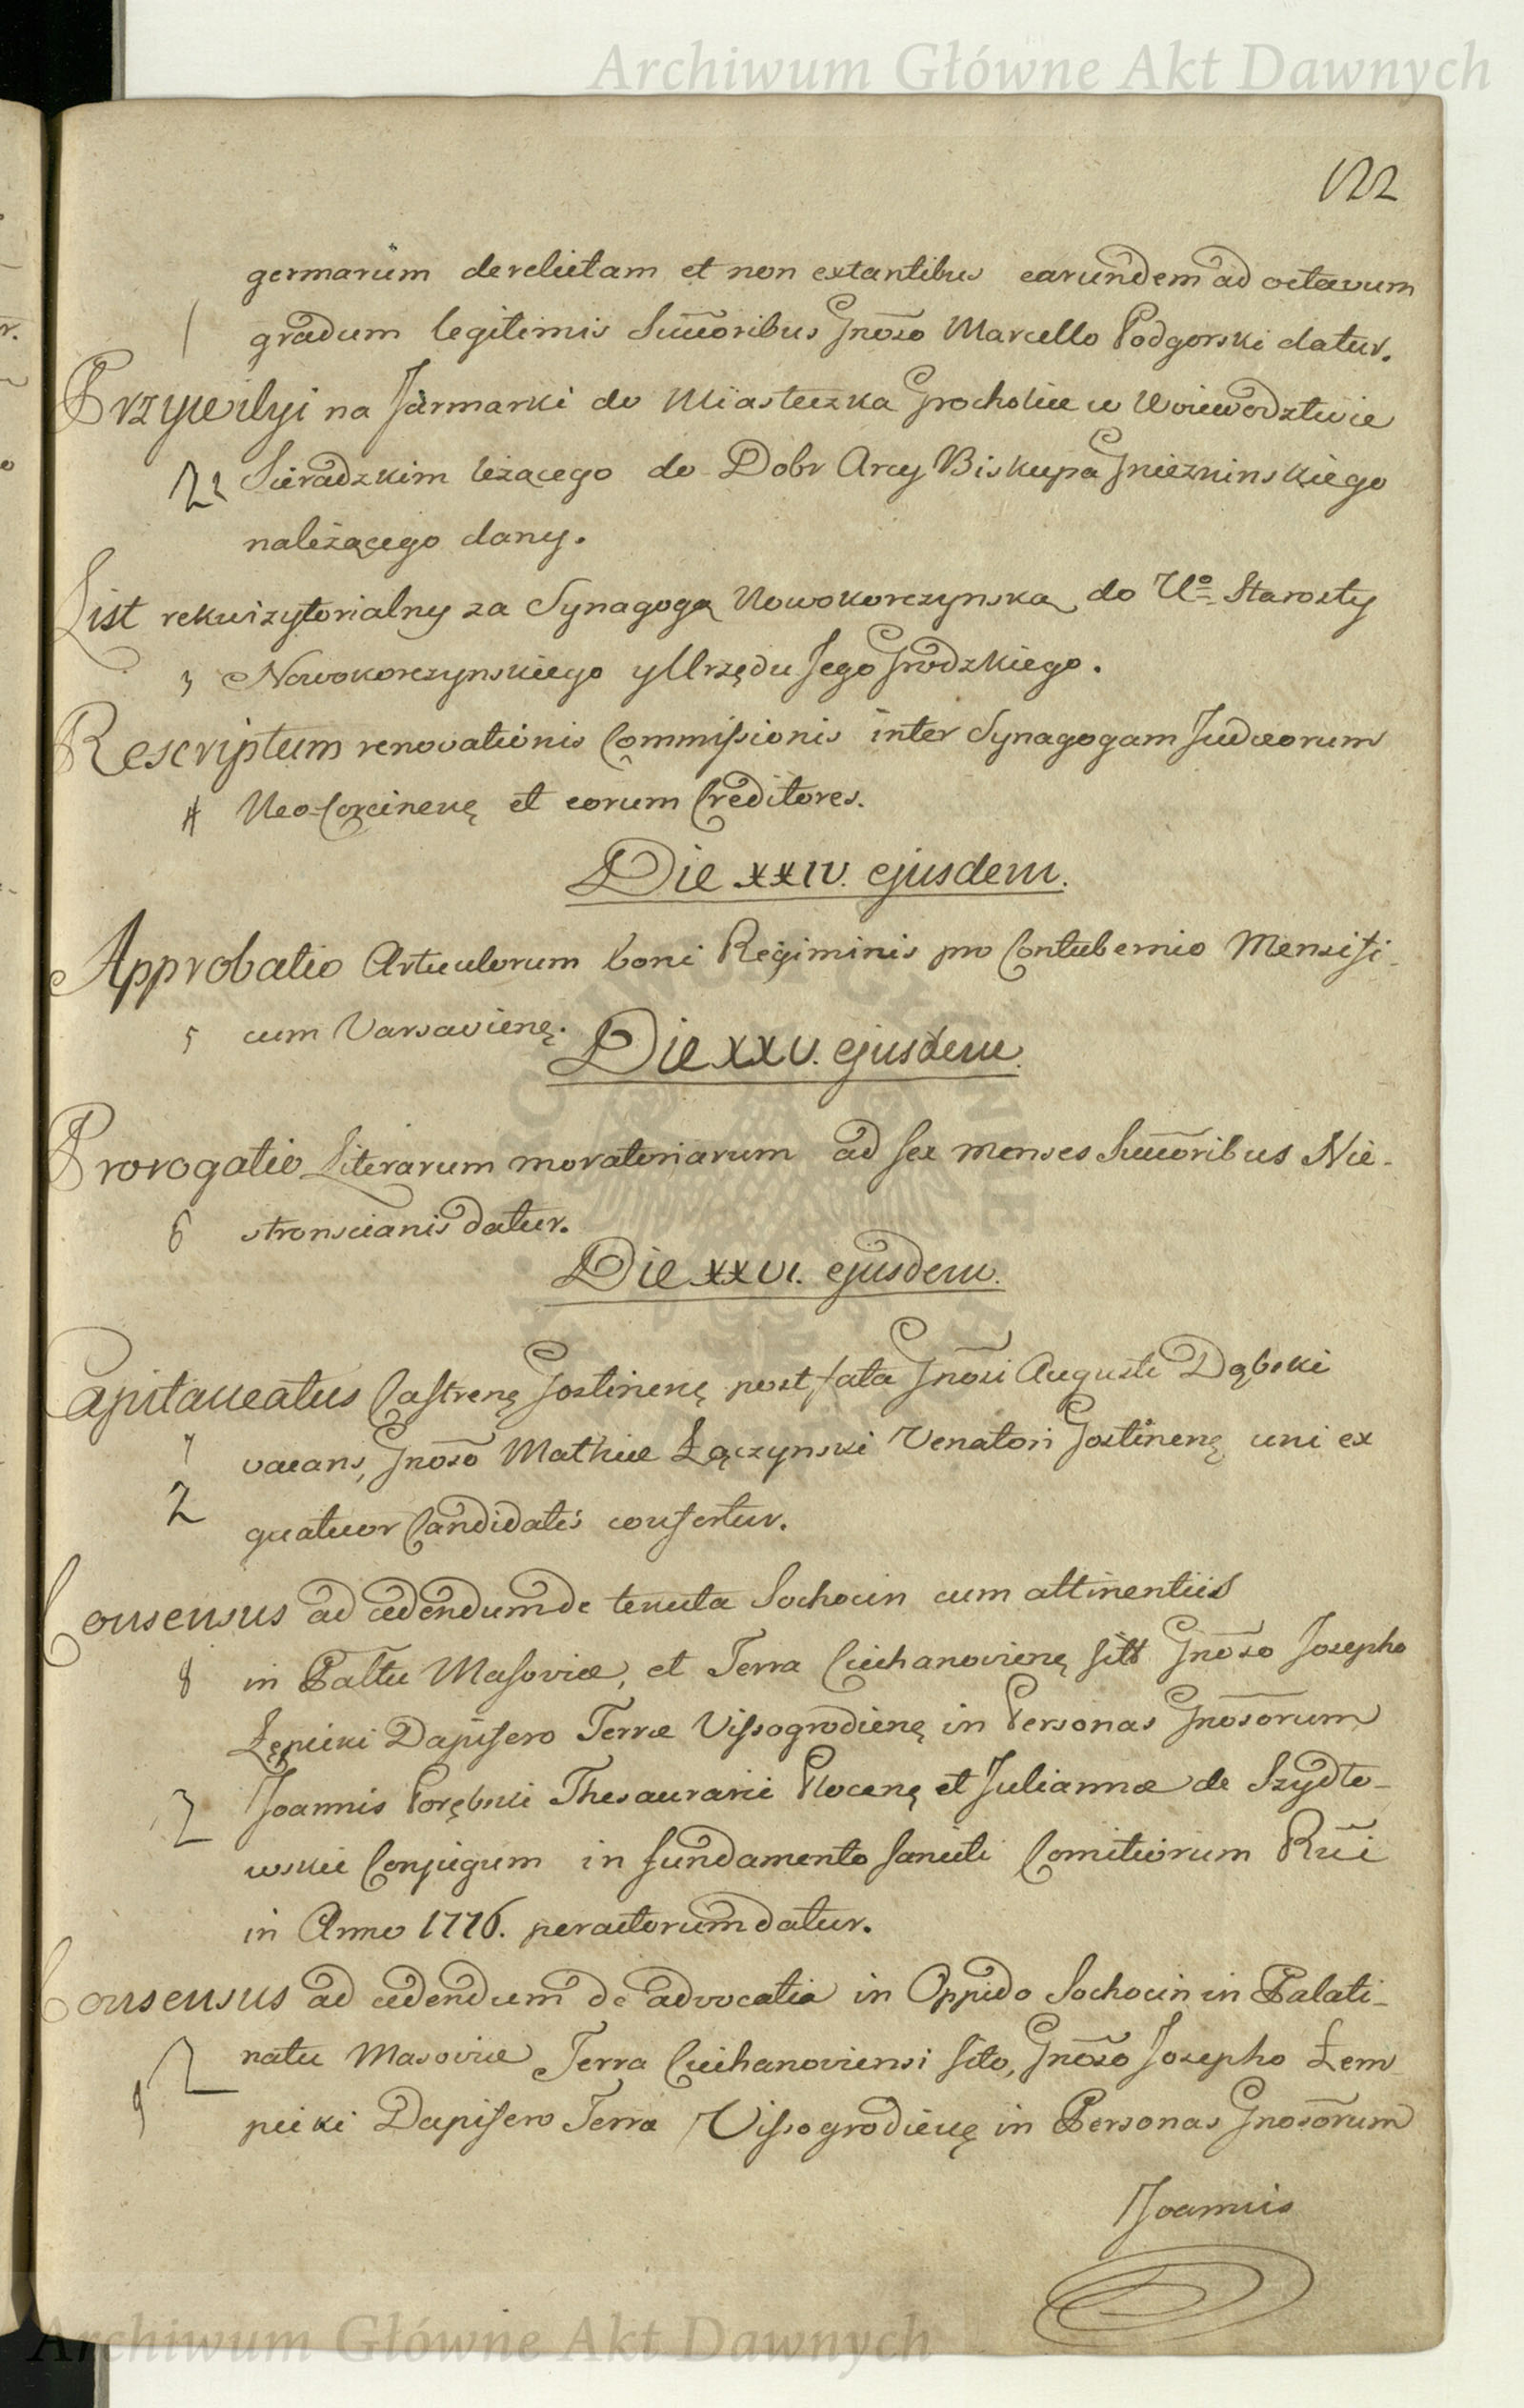 Archiwum Główne Akt Dawnych
122
germanum derelictam et non extantibus earundem ad octavum
1 gradum legitimis Succoribus Gnoso Marcello Podgorski datur.
Przywilyi na Jarmarki do Miasteczka Grocholice w Woiewodztwie
2 Sieradzkim leżącego do Dobr Arcy Biskupa Gniezninskiego
należącego dany.
List rekwizytorialny za Synagogą Nowokorczynską do Uo Starosty
3 Nowokorczynskiego y Urzędu Jego Grodzkiego.
Rescriptum renovationis Commissionis inter Synagogam Judæorum
4 Neo-Corcinenę et eorum Creditores.
Die XXIV. ejusdem.
Approbatio Articulorum boni Regiminis pro Contubernio Mensisi-
5 cum Varsavienę.
Die XXV. ejusdem.
Prorogatio Literarum moratoriarum ad sex menses Succoribus Nie-
6 stronscianis datur.
Die XXVI. ejusdem.
Capitaneatus Castrenę Gostinenę post fata Gnosi Augusti Dąbski
7 vacans, Gnoso Mathiæ Łączynski Venatori Gostinenę uni ex
2 quatuor Candidatis confertur.
Consensus ad cedendum de tenuta Sochocin cum attinentiis
8 in Paltu Masoviæ, et Terra Ciechanovienę sitt Gnoso Josepho
Łępicki Dapifero Terræ Vissogrodienę in Personas Gnosorum
2 Joannis Porębski Thesaurarii Plocenę et Juliannæ de Szydło-
wskie Conjugum in fundamento Sanciti Comitiorum Rni
in Anno 1776. peractorum datur.
Consensus ad cedendum de advocatia in Oppido Sochocin in Palati-
2 natu Masoviæ Terra Ciechanoviensi sito, Gnoso Josepho Łem
9 picki Dapifero Terra Vissogrodienę in Personas Gnosorum
Joannis
Archiwum Główne Akt Dawnych